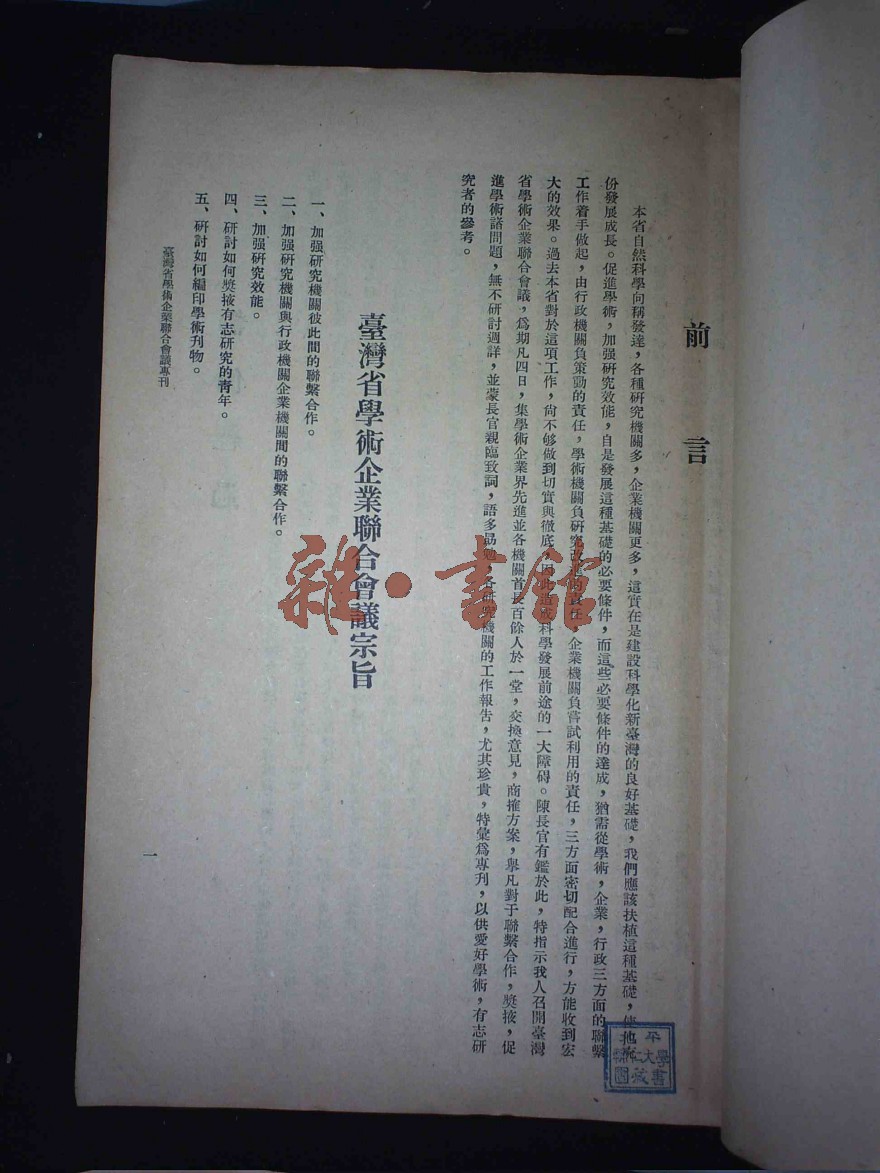 前言
本省自然科學向稱發達，各種研究機關多，企業機關更多，這實在是建設科學化新臺灣的良好基礎，我們應該扶植這種基礎，使他
份發展成長。促進學術，加强研究效能，自是發展這種基礎的必要條件，而這些必要條件的達成，猶需從學術，企業，行政三方面的聯繫
工作着手做起，由行政機關負策動的責任，學術機關負研究改進的責任，企業機關負嘗試利用的責任，三方面密切配合進行，方能收到宏
大的效果。過去本省對於這項工作，尙不够做到切實與徹底，因此造成科學發展前途的一大障碍。陳長官有鑑於此，特指示我人召開臺灣
省學術企業聯合會議，爲期凡四日，集學術企業界先進並各機關首長百餘人於一堂，交換意見，商搉方案，舉凡對于聯繫合作，獎掖，促
進學術諸問題，無不研討週詳，並蒙長官親臨致詞，語多勗勉，各研究機關的工作報告，尤其珍貴，特彙爲專刊，以供愛好學術，有志研
究者的參考。
臺灣省學術企業聯合會議宗旨
一、加强研究機關彼此間的聯繫合作。
二、加强研究機關與行政機關企業機關間的聯繫合作。
三、加强研究效能。
四、研討如何獎掖有志研究的青年。
五、研討如何編印學術刊物。
臺灣省學術企業聯合會議專刊
一
雜·書館